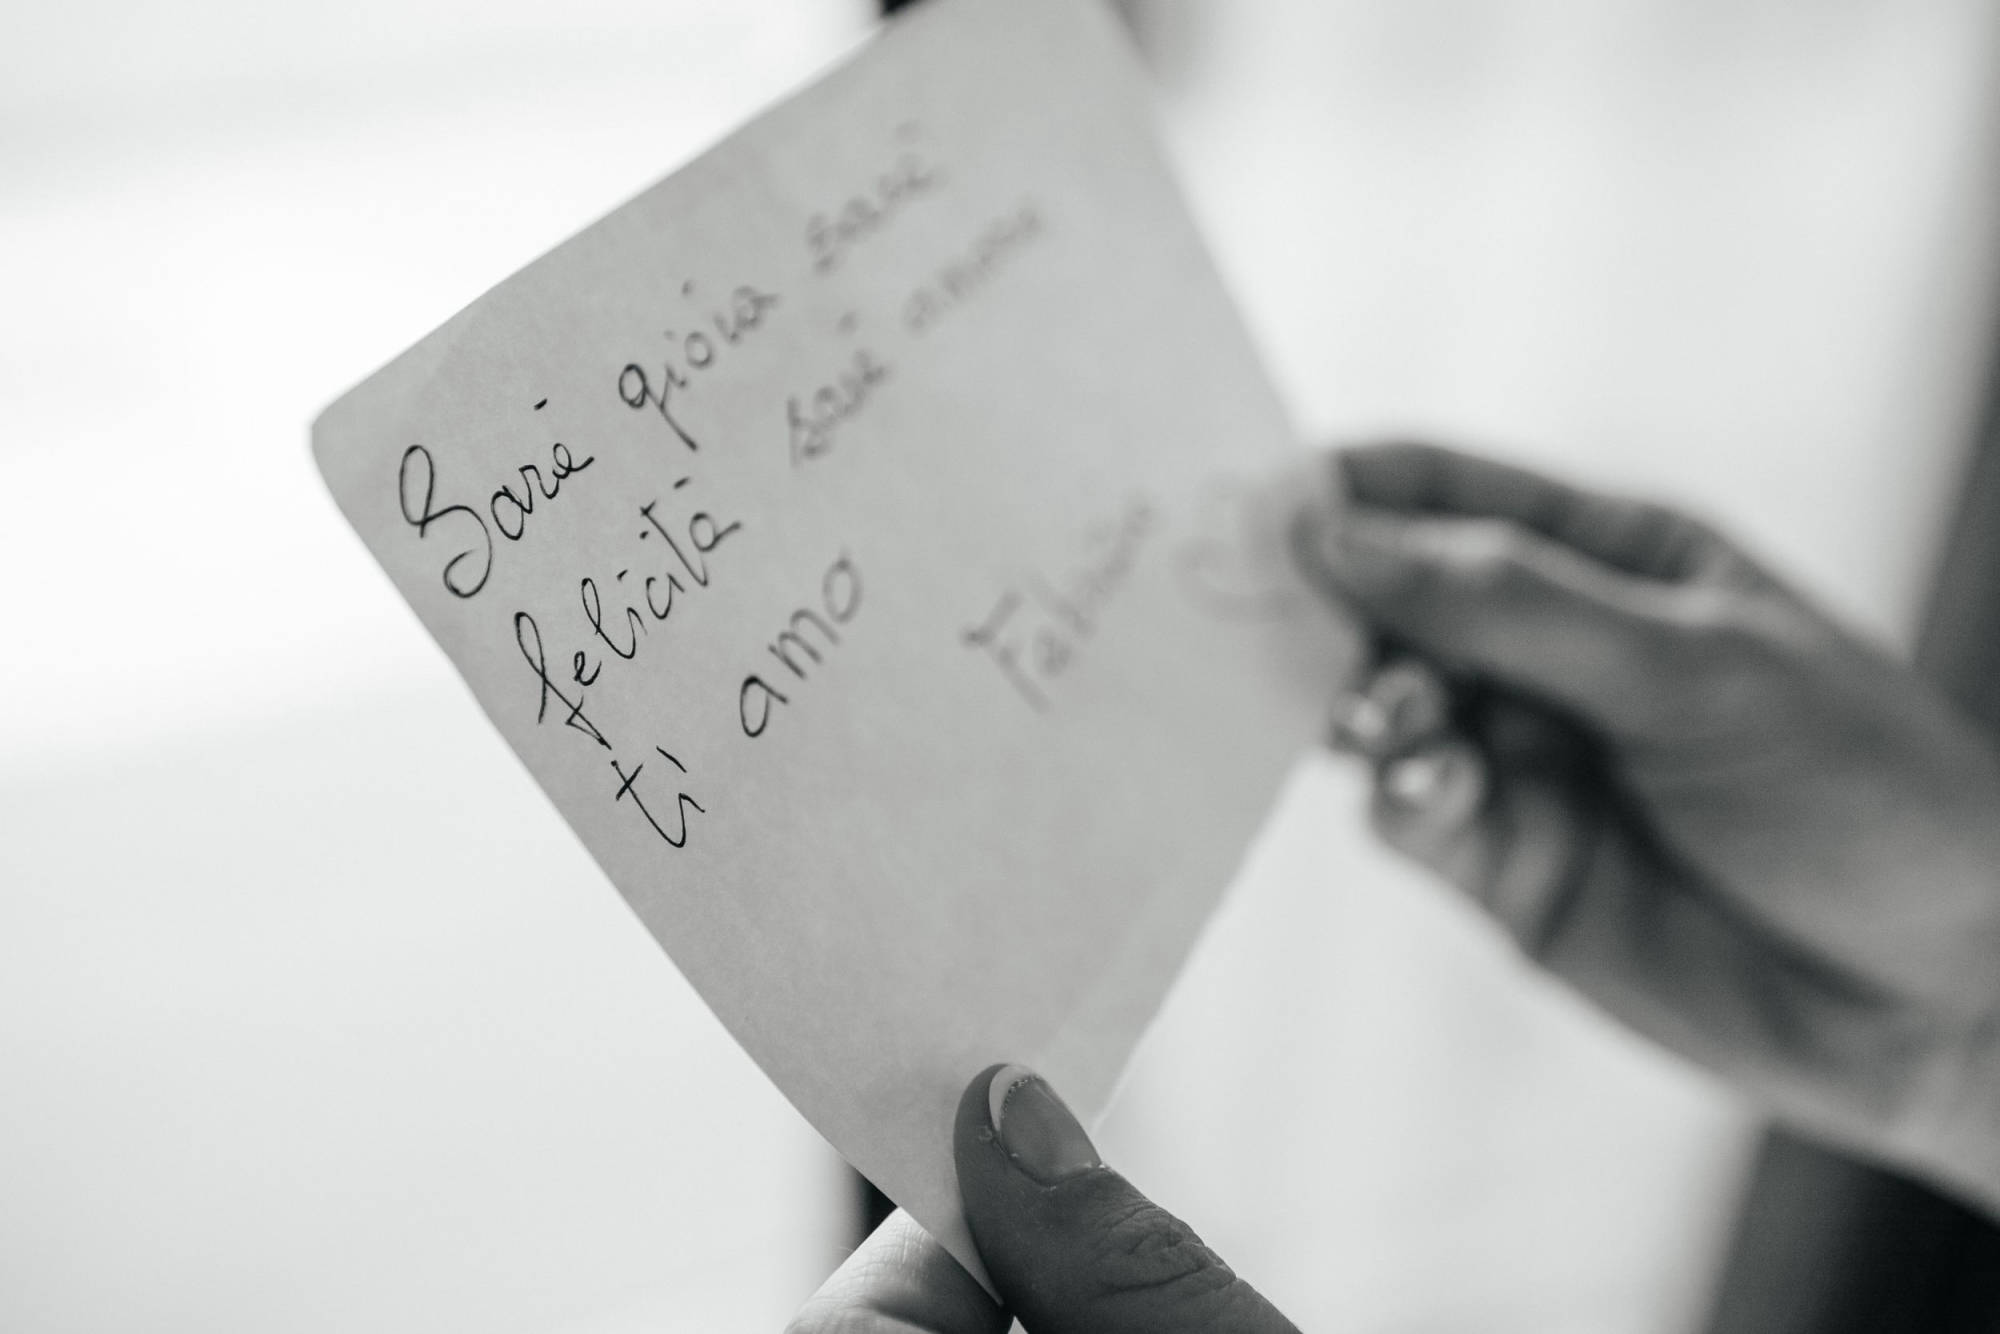 Sarà gioia sarà
felicità sarà amore
ti amo
Fabio